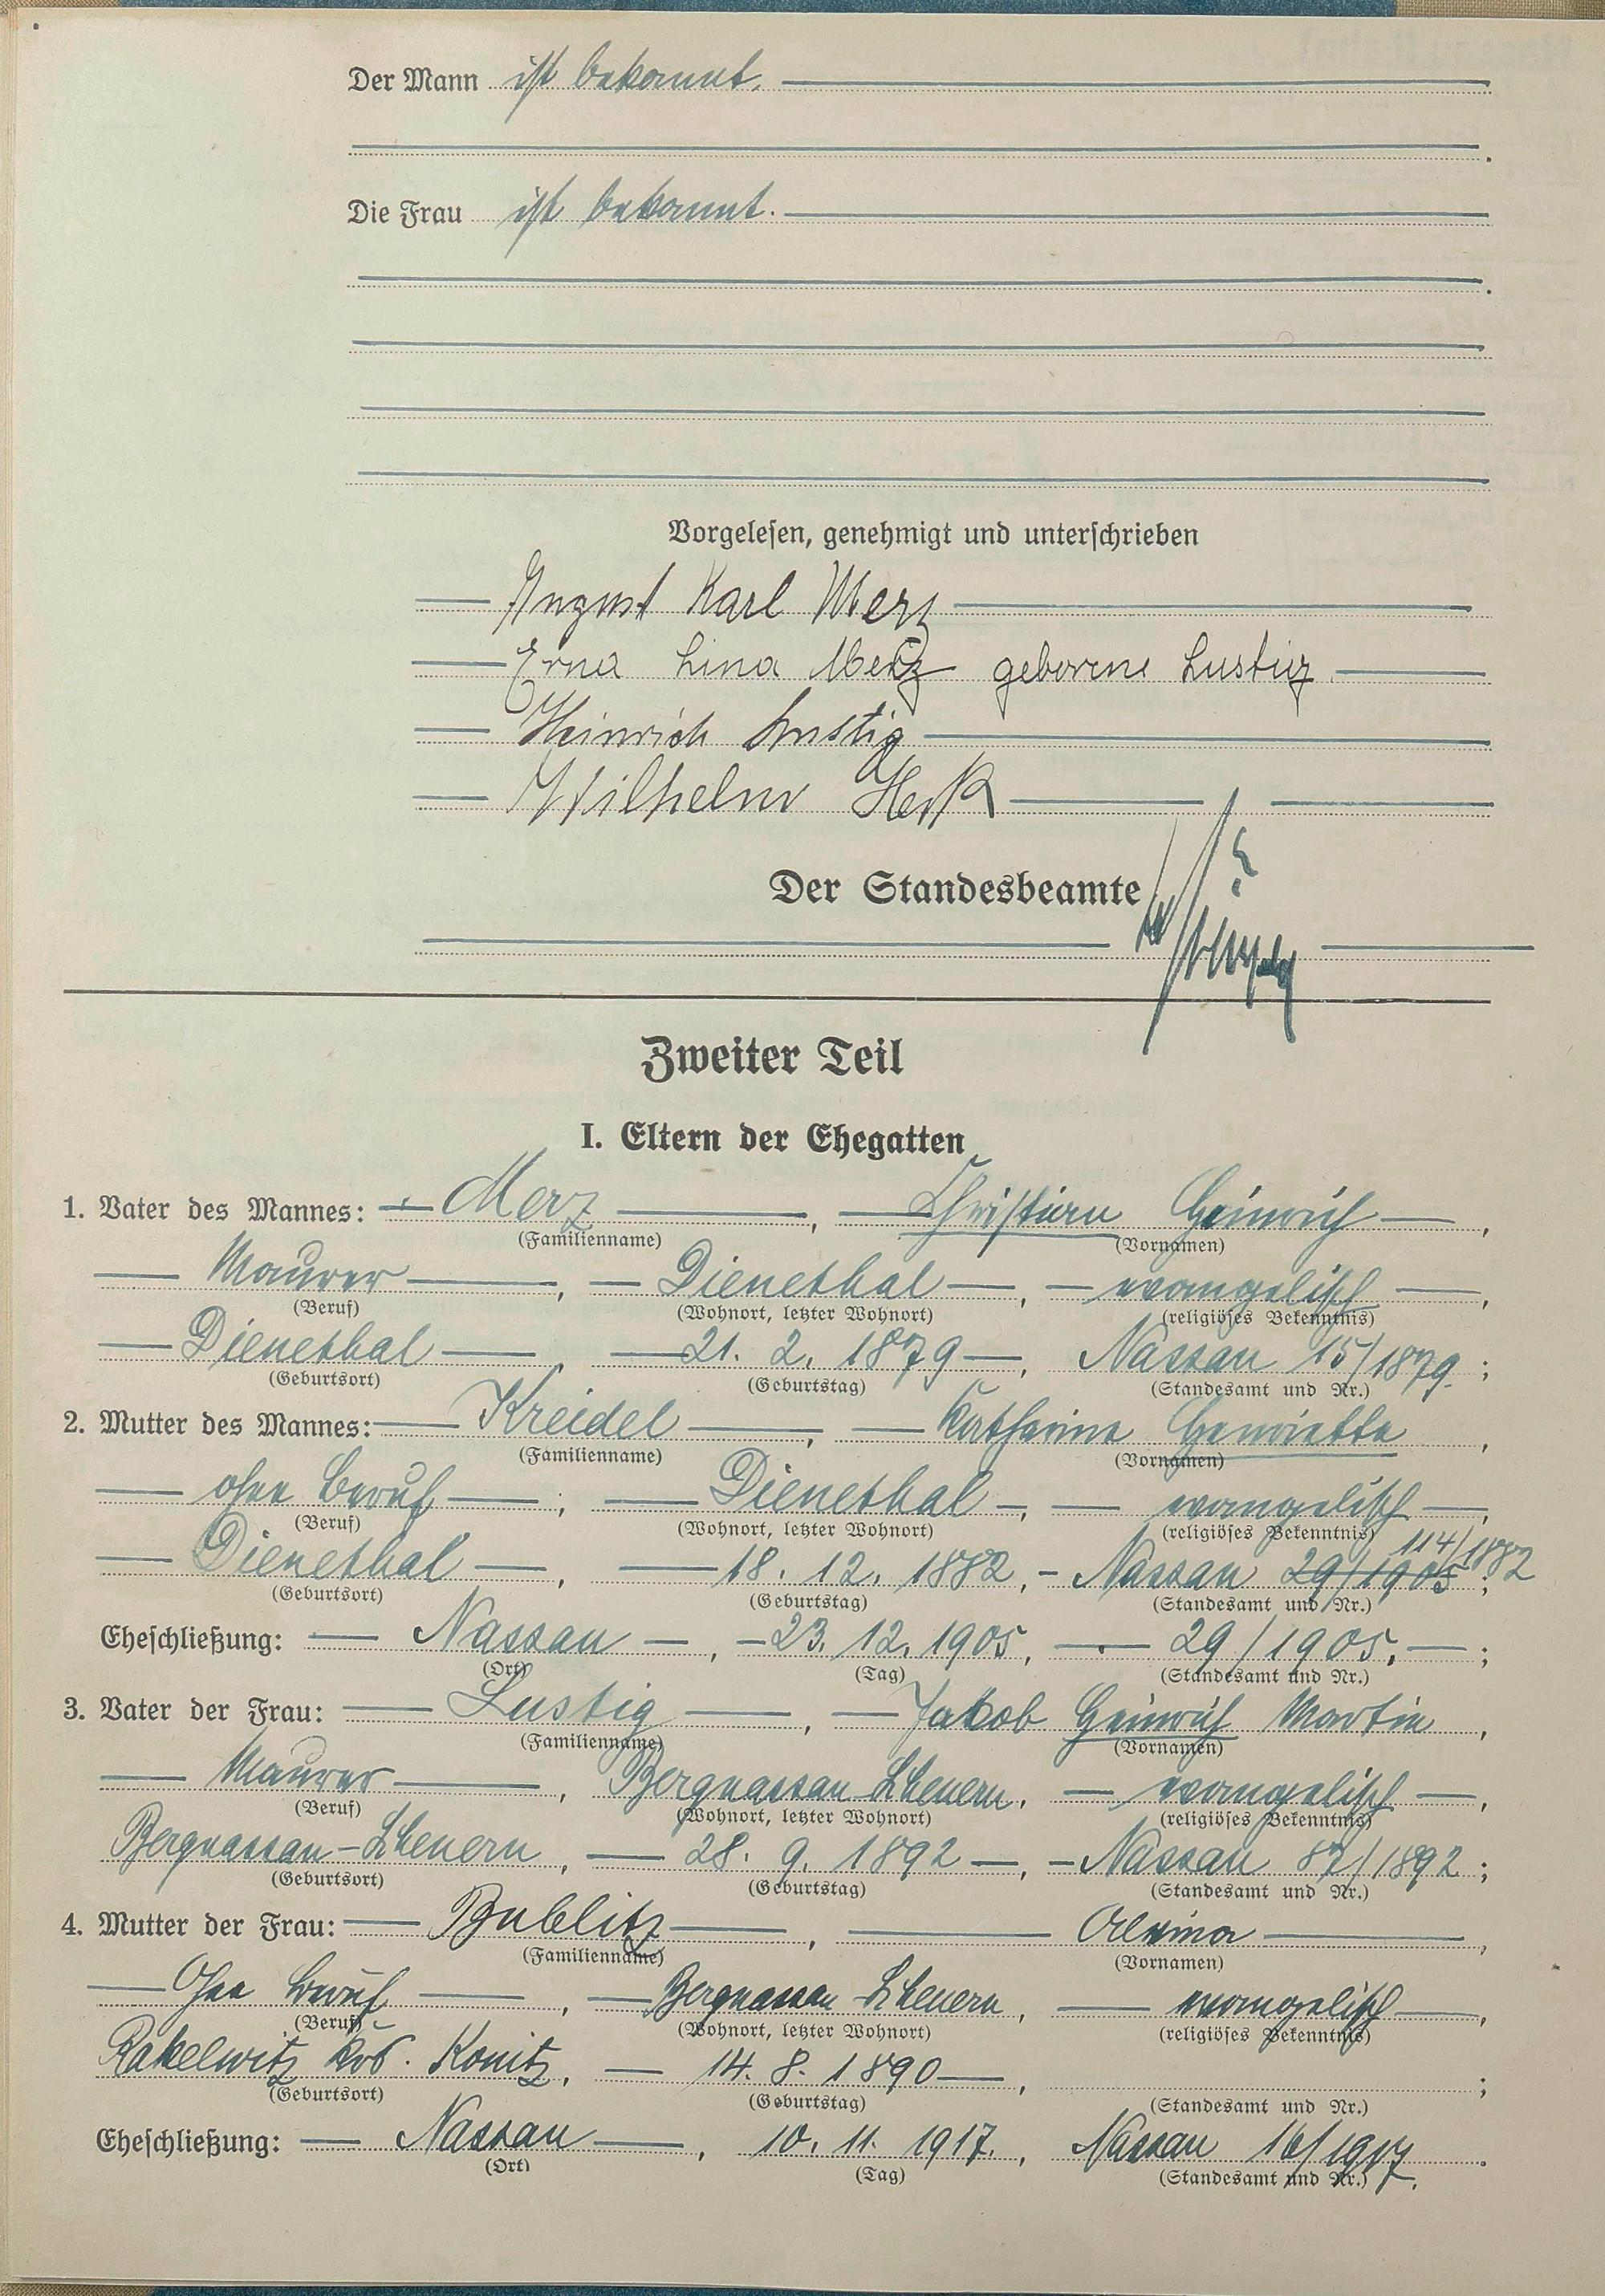 Der Mann ist bekannt.
Die Frau ist bekannt.
Vorgelesen, genehmigt und unterschrieben
August Karl Merz
Erna Lina Merz geborene Lustig.
Heinrich Lustig
Wilhelm
Der Standesbeamte
Zweiter Teil
I. Eltern der Ehegatten
1. Vater des Mannes: Merz, Christian Heinrich,
(Familienname) (Vornamen)
Maurer, Dienethal, evangelisch,
(Beruf) (Wohnort, letzter Wohnort) (religiöses Bekenntnis)
Dienethal, 21. 2. 1879, Nassau 15/1879.;
(Geburtsort) (Geburtstag) (Standesamt und Nr.)
2. Mutter des Mannes: Kreidel, Katharine Henriette,
(Familienname) (Vornamen)
ohne Beruf, Dienethal, evangelisch,
(Beruf) (Wohnort, letzter Wohnort) (religiöses Bekenntnis)
114/1882
Dienethal, 18. 12. 1882, Nassau 29/1905;
(Geburtsort) (Geburtstag) (Standesamt und Nr.)
Eheschließung: Nassau, 23. 12. 1905, 29/1905.;
(Ort) (Tag) (Standesamt und Nr.)
3. Vater der Frau: Lustig, Jakob Heinrich Martin,
(Familienname) (Vornamen)
Maurer, Bergnassau-Scheuern, evangelisch,
(Beruf) (Wohnort, letzter Wohnort) (religiöses Bekenntnis)
Bergnassau-Scheuern, 28. 9. 1892, Nassau 87/1892;
(Geburtsort) (Geburtstag) (Standesamt und Nr.)
4. Mutter der Frau: Bublitz, Alwina,
(Familienname) (Vornamen)
Ohne Beruf, Bergnassau-Scheuern, evangelisch,
(Beruf) (Wohnort, letzter Wohnort) (religiöses Bekenntnis)
Rakelwitz Krs. Konitz, 14. 8. 1890,;
(Geburtsort) (Geburtstag) (Standesamt und Nr.)
Eheschließung: Nassau, 10. 11. 1917., Nassau 16/1917.
(Ort) (Tag) (Standesamt und Nr.)